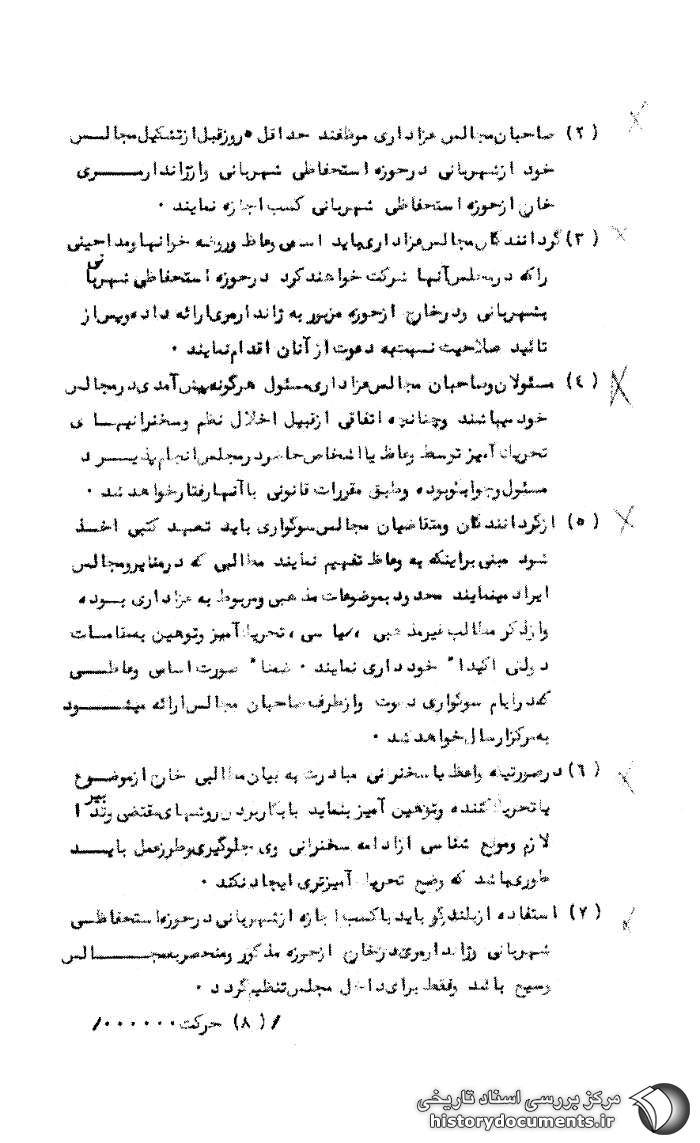 (۲) صاحبان مجالس عزاداری موظفند حداقل ۵ روز قبل از تشکیل مجالس
خود از شهربانی در حوزه استحفاظی شهربانی و از ژاندارمری
خارج از حوزه استحفاظی شهربانی کسب اجازه نمایند .
(۳) گردانندگان مجالس عزاداری باید اسامی وعاظ و روضه خوانها و مداحینی
را که در مجلس آنها شرکت خواهند کرد در حوزه استحفاظی شهربانی
بشهربانی و در خارج از حوزه مزبور به ژاندارمری ارائه داده و پس از
تائید صلاحیت نسبت به دعوت از آنان اقدام نمایند .
(٤) مسئولان و صاحبان مجالس عزاداری مسئول هرگونه پیش آمدی در مجالس
خود میباشند و چنانچه اتفاقی از قبیل اخلال نظم و سخنرانیهای
تحریک آمیز توسط وعاظ یا اشخاص حاضر در مجلس انجام پذیرد
مسئول و جوابگو بوده و طبق مقررات قانونی با آنها رفتار خواهد شد .
(۵) از گردانندگان و متقاضیان مجالس سوگواری باید تعهد کتبی اخذ
شود مبنی بر اینکه به وعاظ تفهیم نمایند مطالبی که در منابر و مجالس
ایراد مینمایند محدود بموضوعات مذهبی و مربوط به عزاداری بوده
و از ذکر مطالب غیر مذهبی ، سیاسی ، تحریک آمیز و توهین به مقامات
دولتی اکیدا" خودداری نمایند . ضمنا" صورت اساسی وعاظی
که در ایام سوگواری دعوت و از طرف صاحبان مجالس ارائه میشود
به مرکز ارسال خواهد شد .
(٦) در صورتیکه واعظ یا سخنرانی مبادرت به بیان مطالبی خارج از موضوع
یا تحریک کننده و توهین آمیز بنماید با بکار بردن روشهای مقتضی و تدابیر
لازم و موقع شناسی از ادامه سخنرانی وی جلوگیری و طرز عمل باید
طوری باشد که وضع تحریک آمیزتری ایجاد نکند .
(۷) استفاده از بلندگو باید با کسب اجازه از شهربانی در حوزه استحفاظی
شهربانی و ژاندارمری در خارج از حوزه مذکور و منحصر به مجالس
وسیع باشد و فقط برای داخل مجلس تنظیم گردد .
/(۸) حرکت ....../
مرکز بررسی اسناد تاریخی
historydocuments.ir